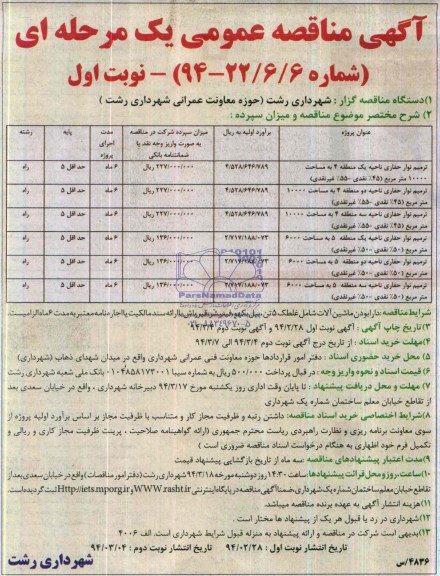 آگهی مناقصه عمومی یک مرحله ای
(شماره ۹۴-۲۲/۶/۶) - نوبت اول
۱)دستگاه مناقصه گزار : شهرداری رشت (حوزه معاونت عمرانی شهرداری رشت )
۲) شرح مختصر موضوع مناقصه و میزان سپرده :
عنوان پروژه برآورد اولیه به ریال میزان سپرده شرکت در مناقصه به صورت واریز وجه نقد یا ضمانتنامه بانکی مدت اجرای پروژه پایه رشته
ترمیم نوار حفاری ناحیه یک منطقه ۴ به مساحت ۱۰۰۰۰ متر مربع (۴۵٪ نقدی -۵۵٪ غیرنقدی) ۴/۵۲۸/۶۴۶/۷۸۹ ۲۲۷/۰۰۰/۰۰۰ ریال ۶ ماه حداقل ۵ راه
ترمیم نوار حفاری ناحیه دو منطقه ۴ به مساحت ۱۰۰۰۰ متر مربع (۴۵٪ نقدی -۵۵٪ غیرنقدی) ۴/۵۲۸/۶۴۶/۷۸۹ ۲۲۷/۰۰۰/۰۰۰ ریال ۶ ماه حداقل ۵ راه
ترمیم نوار حفاری ناحیه سه منطقه ۴ به مساحت ۱۰۰۰۰ متر مربع (۴۵٪ نقدی -۵۵٪ غیرنقدی) ۴/۵۲۸/۶۴۶/۷۸۹ ۲۲۷/۰۰۰/۰۰۰ ریال ۶ ماه حداقل ۵ راه
ترمیم نوار حفاری ناحیه یک منطقه ۵ به مساحت ۶۰۰۰ متر مربع (۵۰٪ نقدی -۵۰٪ غیرنقدی) ۲/۷۱۷/۱۸۸/۰۷۳ ۱۳۶/۰۰۰/۰۰۰ ریال ۶ ماه حداقل ۵ راه
ترمیم نوار حفاری ناحیه دو منطقه ۵ به مساحت ۶۰۰۰ متر مربع (۵۰٪ نقدی -۵۰٪ غیرنقدی) ۲/۷۱۷/۱۸۸/۰۷۳ ۱۳۶/۰۰۰/۰۰۰ ریال ۶ ماه حداقل ۵ راه
ترمیم نوار حفاری ناحیه سه منطقه ۵ به مساحت ۶۰۰۰ متر مربع (۵۰٪ نقدی -۵۰٪ غیرنقدی) ۲/۷۱۷/۱۸۸/۰۷۳ ۱۳۶/۰۰۰/۰۰۰ ریال ۶ ماه حداقل ۵ راه
ParsNamadData
شرایط مناقصه: دارا بودن ماشین آلات شامل غلطک ۵ تن، با ارائه سند مالکیت یا اجاره نامه معتبر به مدت ۶ ماه الزامیست.
۳)تاریخ چاپ آگهی : آگهی نوبت اول ۹۴/۲/۲۸ و آگهی نوبت دوم ۹۴/۳/۴
۴)مهلت خرید اسناد : از تاریخ درج آگهی نوبت دوم ۹۴/۳/۴ الی ۹۴/۳/۷
۵) محل خرید حضوری اسناد : دفتر امور قراردادها حوزه معاونت فنی عمرانی شهرداری واقع در میدان شهدای ذهاب (شهرداری)
۶) قیمت اسناد و نحوه واریز وجه : در قبال پرداخت ۵۰۰/۰۰۰ ریال به شماره سیبا ۰۱۰۴۸۵۸۱۷۳۰۰۱ بانک ملی شعبه شهرداری رشت
۷) مهلت و محل دریافت پیشنهاد : تا پایان وقت اداری روز یکشنبه مورخ ۹۴/۳/۱۷ دبیرخانه شهرداری ، واقع در خیابان سعدی بعد از تقاطع خیابان معلم ساختمان شماره یک شهرداری
۸)شرایط اختصاصی خرید اسناد مناقصه: داشتن رتبه و ظرفیت مجاز کار و متناسب با ظرفیت مجاز بر اساس برآورد اولیه پروژه از سوی معاونت برنامه ریزی و نظارت راهبردی ریاست محترم جمهوری (ارائه گواهینامه صلاحیت ، پرینت ظرفیت مجاز کاری و ریالی و تکمیل فرم خود اظهاری به هنگام درخواست اسناد مناقصه ضروری است )
۹)مدت اعتبار پیشنهادهای مناقصه :سه ماه از تاریخ بازگشایی پیشنهاد قیمت
۱۰)ساعت، روز و محل قرائت پیشنهادها: ساعت ۱۴:۳۰ روز دوشنبه مورخه ۹۴/۳/۱۸ شهرداری رشت (دفتر امور مناقصات) واقع در خیابان سعدی بعد از تقاطع خیابان معلم ساختمان شماره یک شهرداری، ضمنا آگهی مناقصه در پایگاه اینترنتی WWW.rasht.ir و Http://iets.mporg.ir ثبت گردیده است.
۱۱)هزینه انتشار آگهی به عهده برنده مناقصه میباشد.
۱۲)شهرداری در رد یا قبول هر یک از پیشنهاد ها مختار است .
۱۳)بدیهی است شرکت در مناقصه و ارائه پیشنهاد به منزله قبول شرایط شهرداری است. الف ۴۰۰۶
تاریخ انتشار نوبت اول : ۹۴/۰۲/۲۸ تاریخ انتشار نوبت دوم : ۹۴/۰۳/۰۴
۴۸۳۶/س
شهرداری رشت